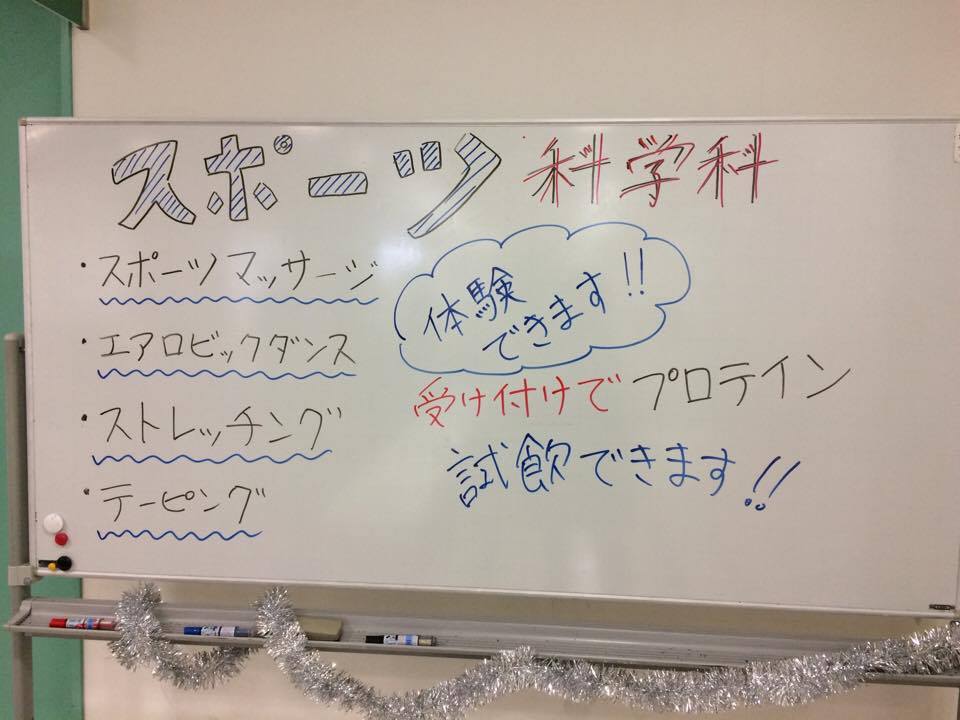 スポーツ 科学科
・スポーツマッサージ
・エアロビックダンス
・ストレッチング
・テーピング
体験
できます!!
受け付けでプロテイン
試飲できます!!